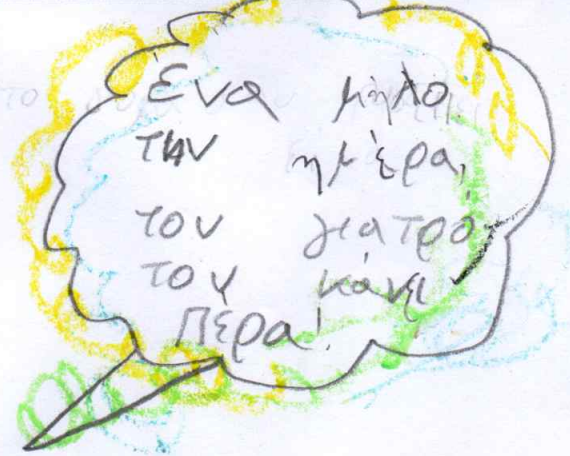 Ένα μήλο
την ημέρα,
τον γιατρό
τον κάνει
πέρα!